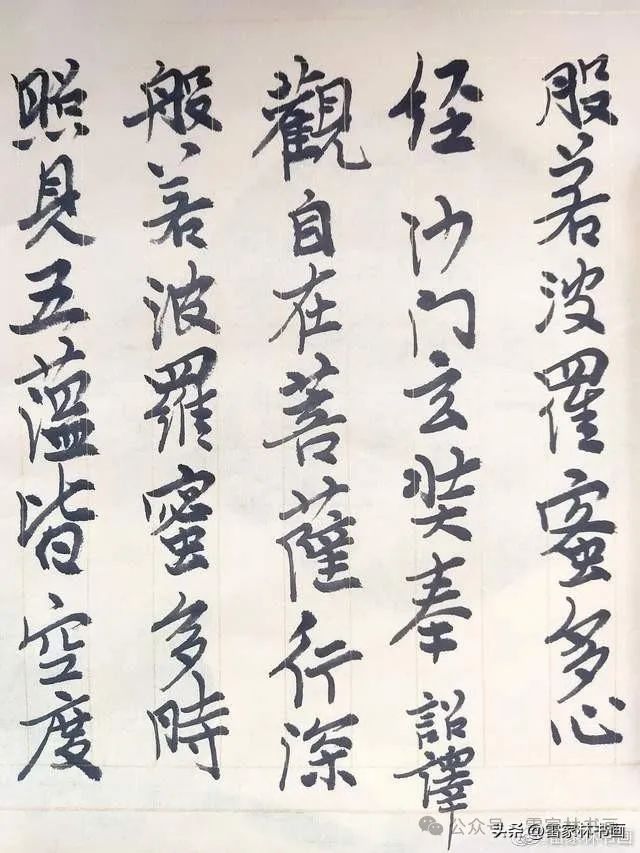 般若波羅蜜多心
经沙门玄奘奉詔譯
觀自在菩薩行深
般若波羅蜜多時
照見五蘊皆空度
公众号·雷家林书画
头条@雷家林书画
@雷家林书画